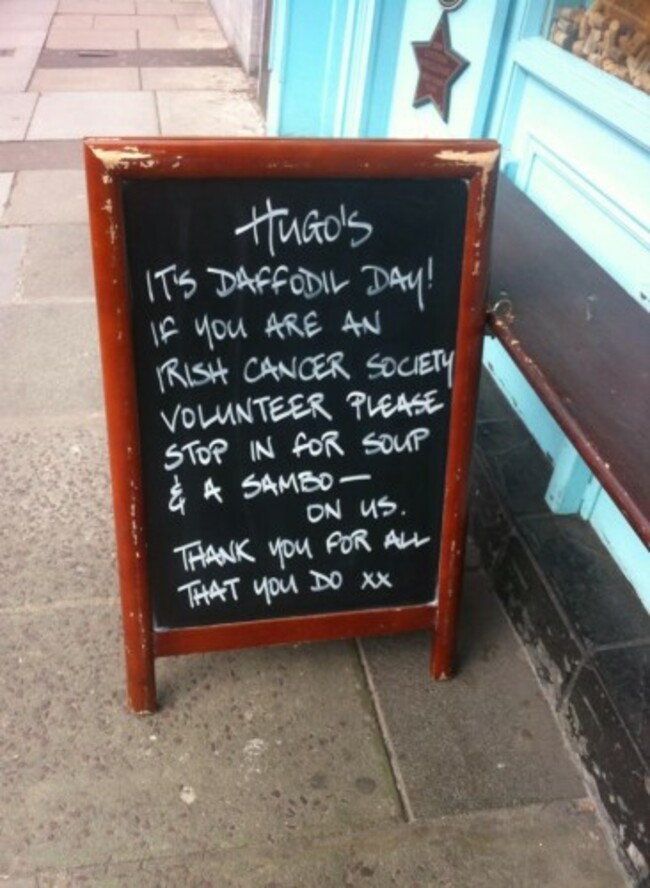 HUGO'S
IT'S DAFFODIL DAY!
IF YOU ARE AN
IRISH CANCER SOCIETY
VOLUNTEER PLEASE
STOP IN FOR SOUP
& A SAMBO —
ON US.
THANK YOU FOR ALL
THAT YOU DO XX